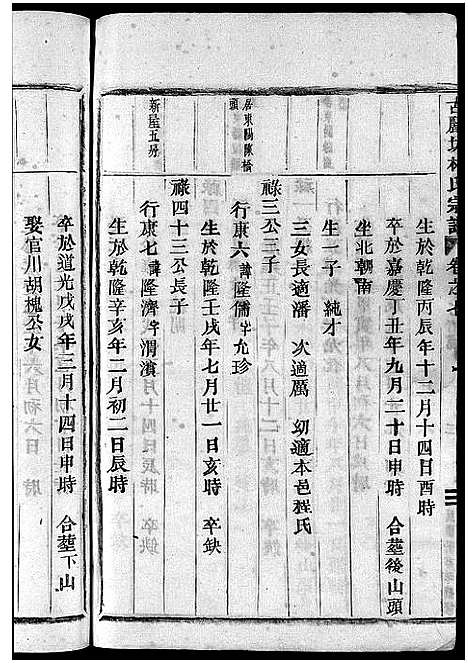 林氏宗譜
生於乾隆丙辰年十二月十四日酉時
卒於嘉慶丁丑年九月二十日申時 合塟後山頭
坐北朝南
生一子 純才
三女長適潘 次適厲 幼適本邑程氏
祿三公三子
居東陽陳橋頭
行康六 諱隆儒 字允珍
生於乾隆壬戌年七月廿一日亥時 卒缺
祿四十三公長子
新屋五房
行康七 諱隆濟 字渭濱
生於乾隆辛亥年二月初二日辰時
卒於道光戊戌年三月十四日申時 合塟下山
娶官川胡槐公女